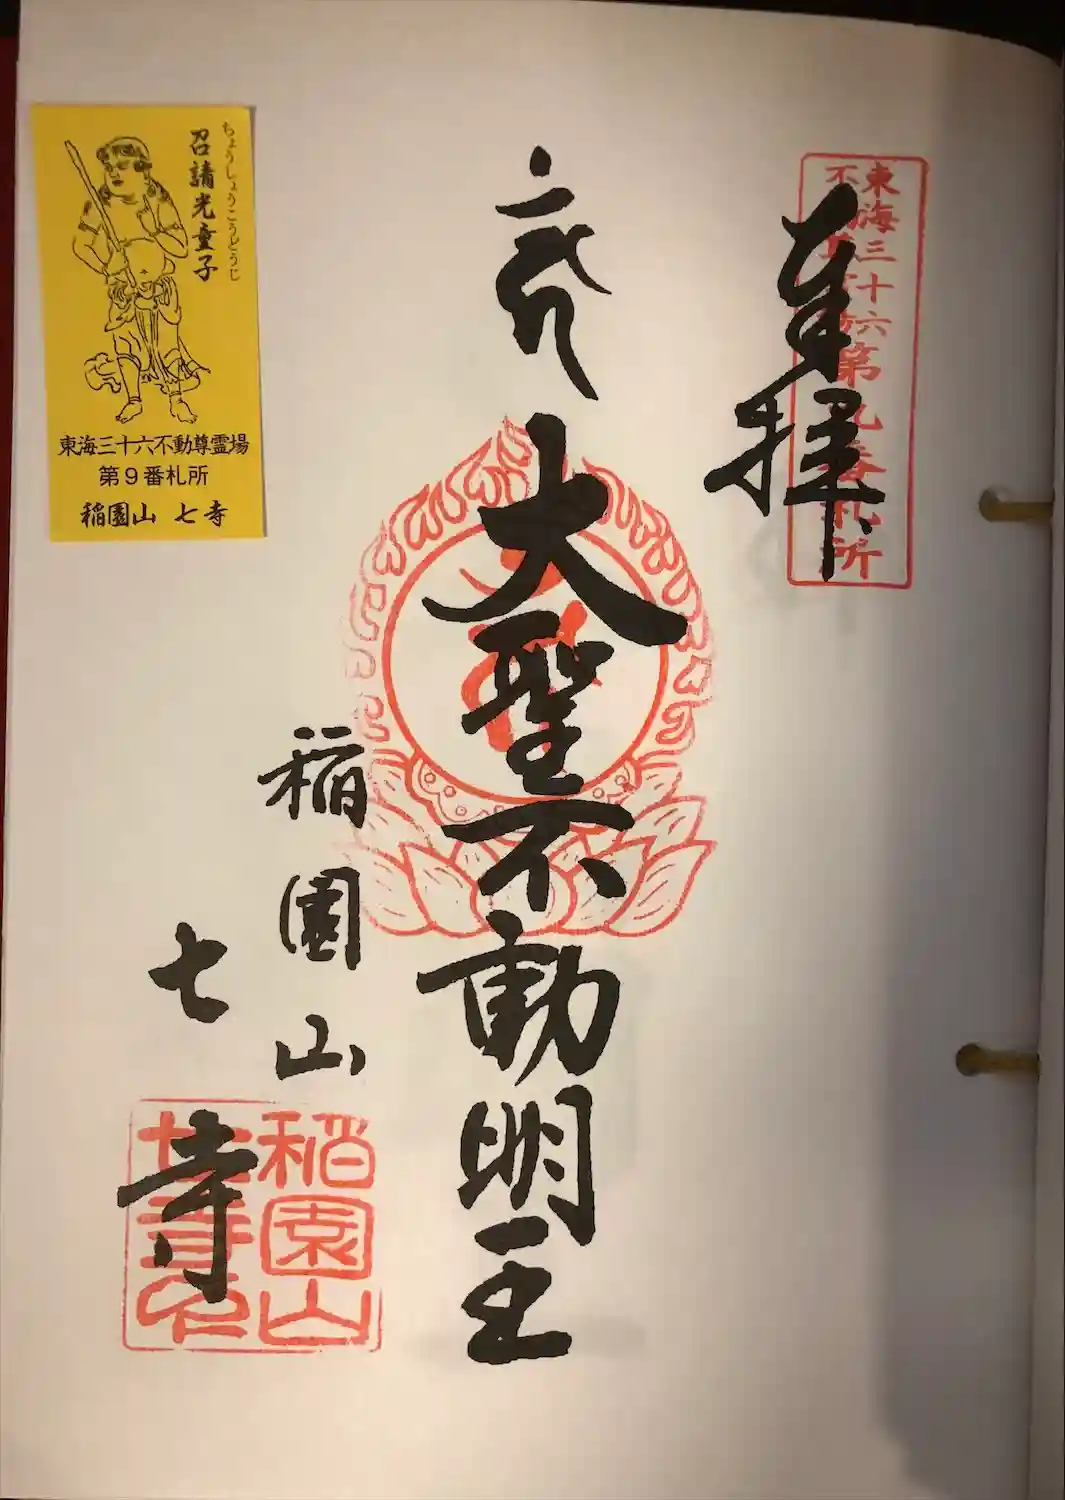 東海三十六
不動尊霊場
第九番札所
奉拝
大聖不動明王
稲園山
七寺
稲園山
七寺
ちょうしょうこうどうじ
召請光童子
東海三十六不動尊霊場
第9番札所
稲園山 七寺